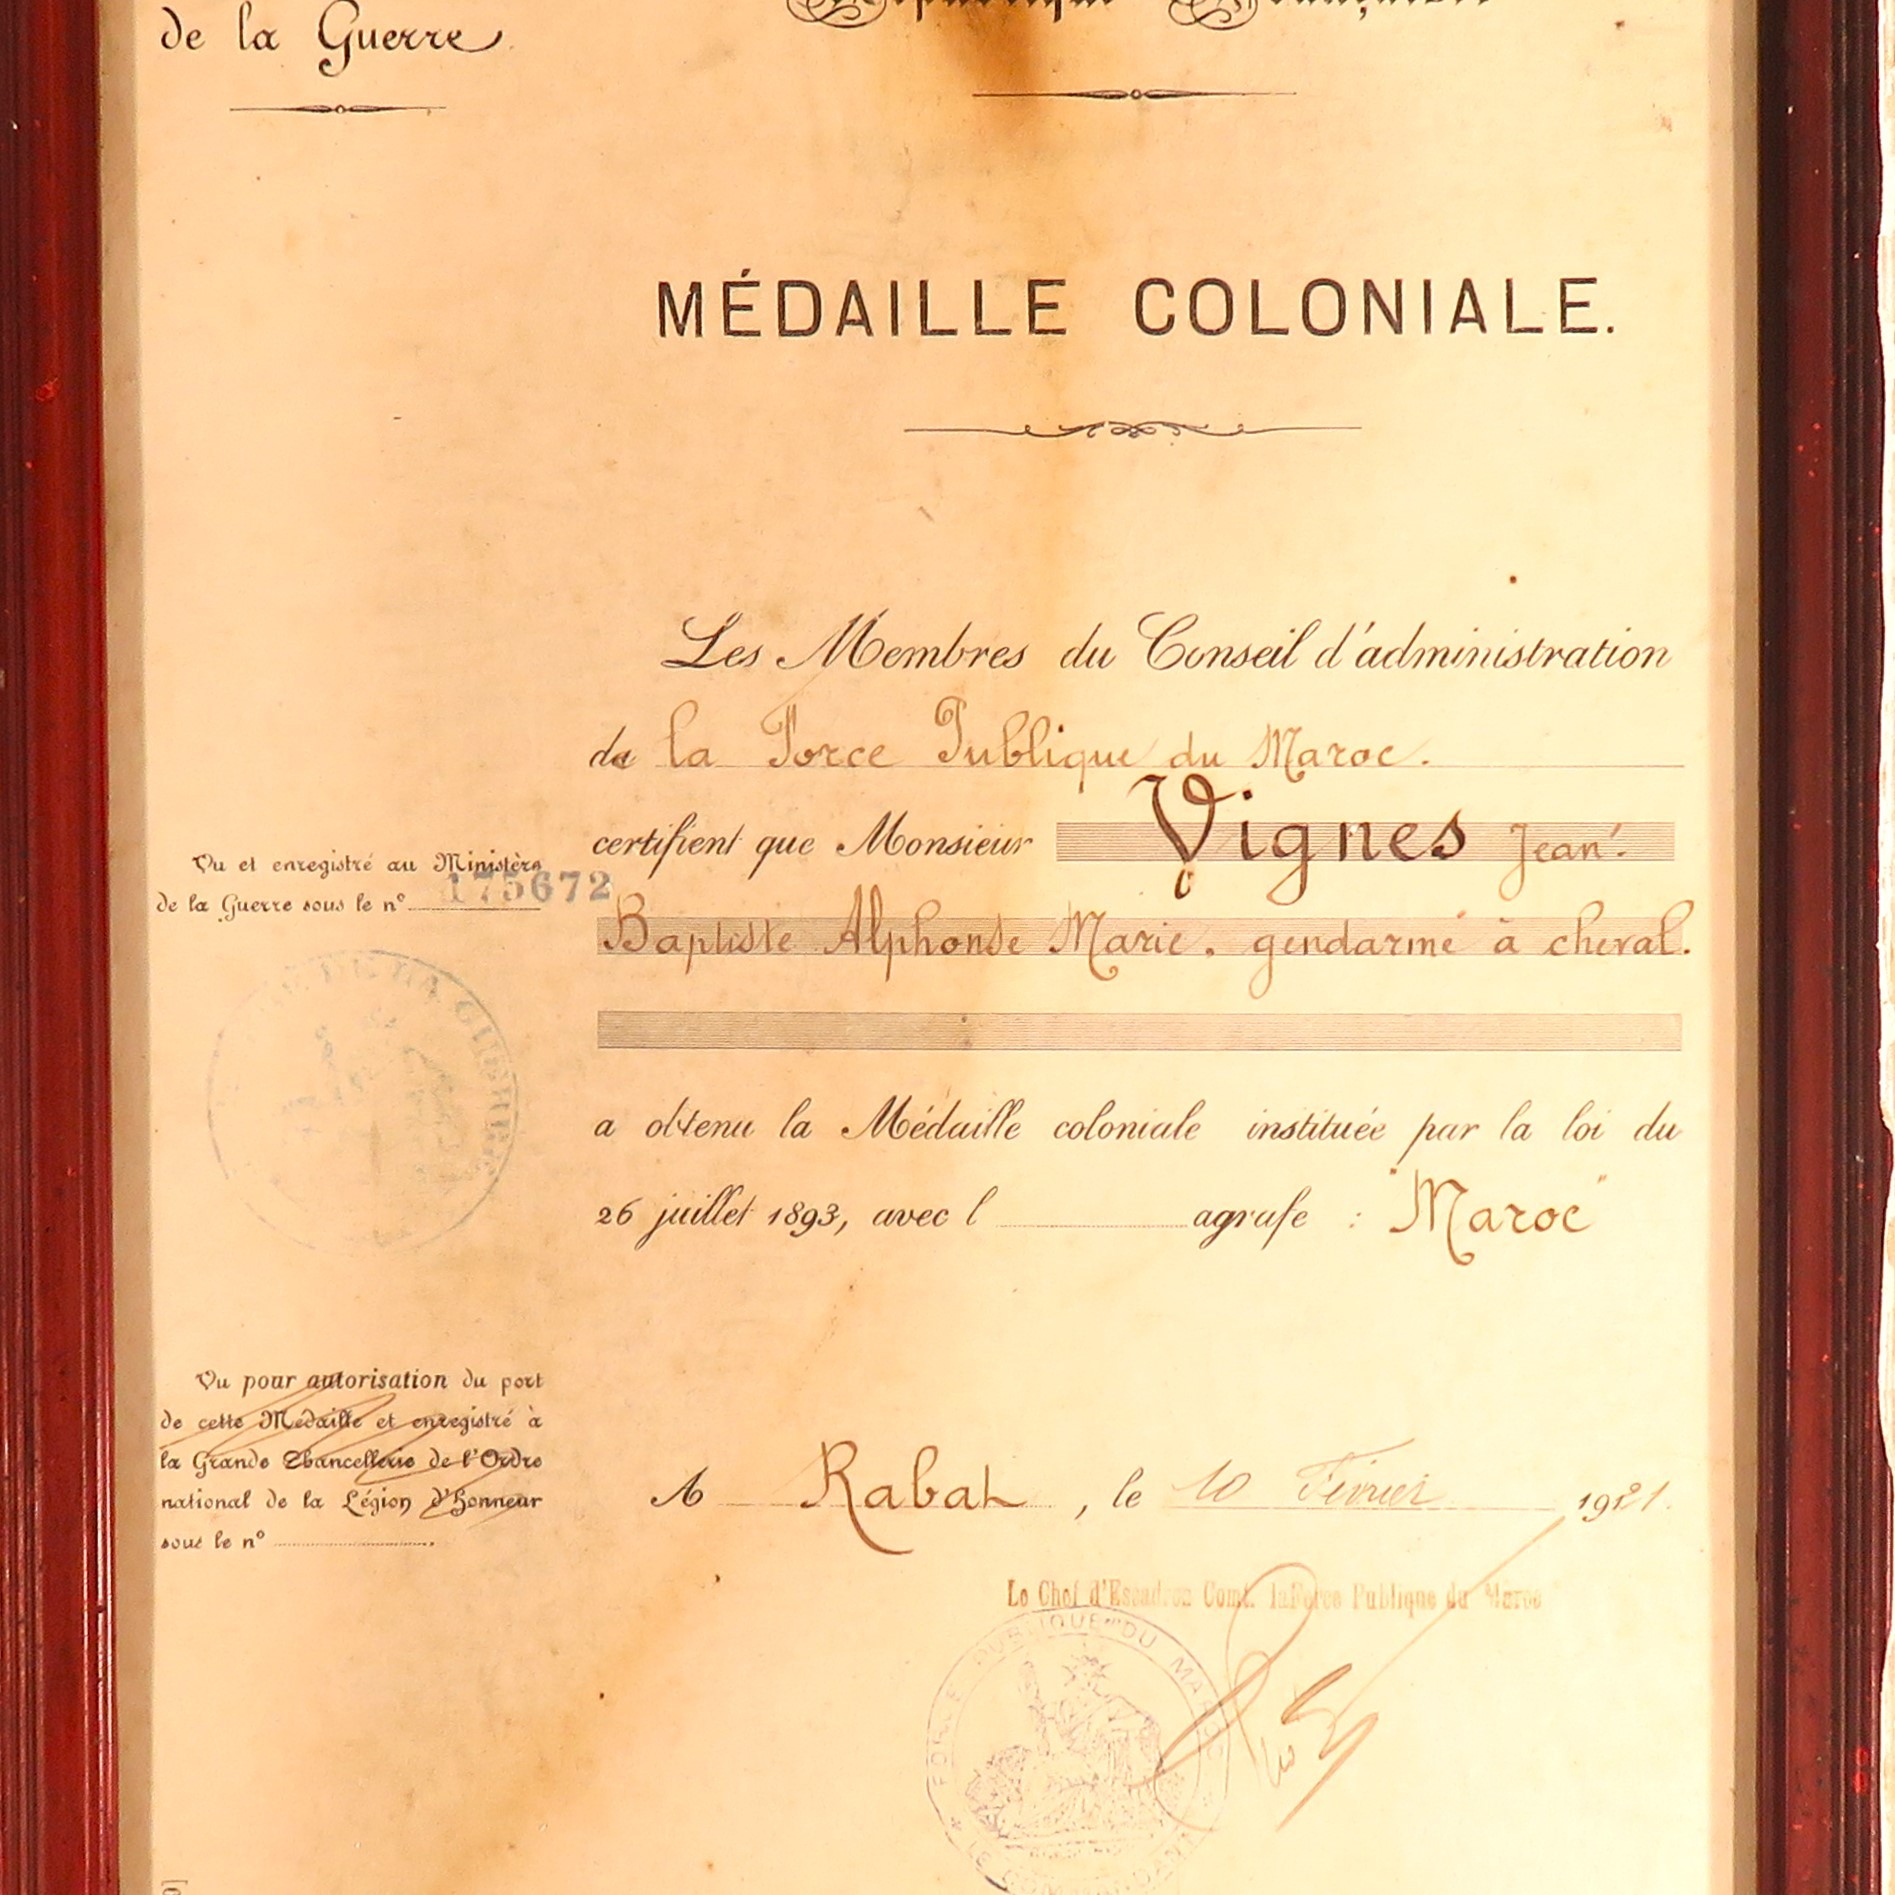 de la Guerre
République Française
MÉDAILLE COLONIALE.
Les Membres du Conseil d'administration
de la Force Publique du Maroc.
certifient que Monsieur Vignes Jean
Baptiste Alphonse Marie, gendarme à cheval.
Vu et enregistré au Ministère
de la Guerre sous le n° 175672
DE LA GUERRE
a obtenu la Médaille coloniale instituée par la loi du
26 juillet 1893, avec l agrafe : "Maroc"
Vu pour autorisation du port
de cette Médaille et enregistré à
la Grande Chancellerie de l'Ordre
national de la Légion d'Honneur
sous le n°
A Rabat, le 10 Février 1921.
Le Chef d'Escadron Comt. la Force Publique du Maroc
FORCE PUBLIQUE DU MAROC
LE COMMANDANT